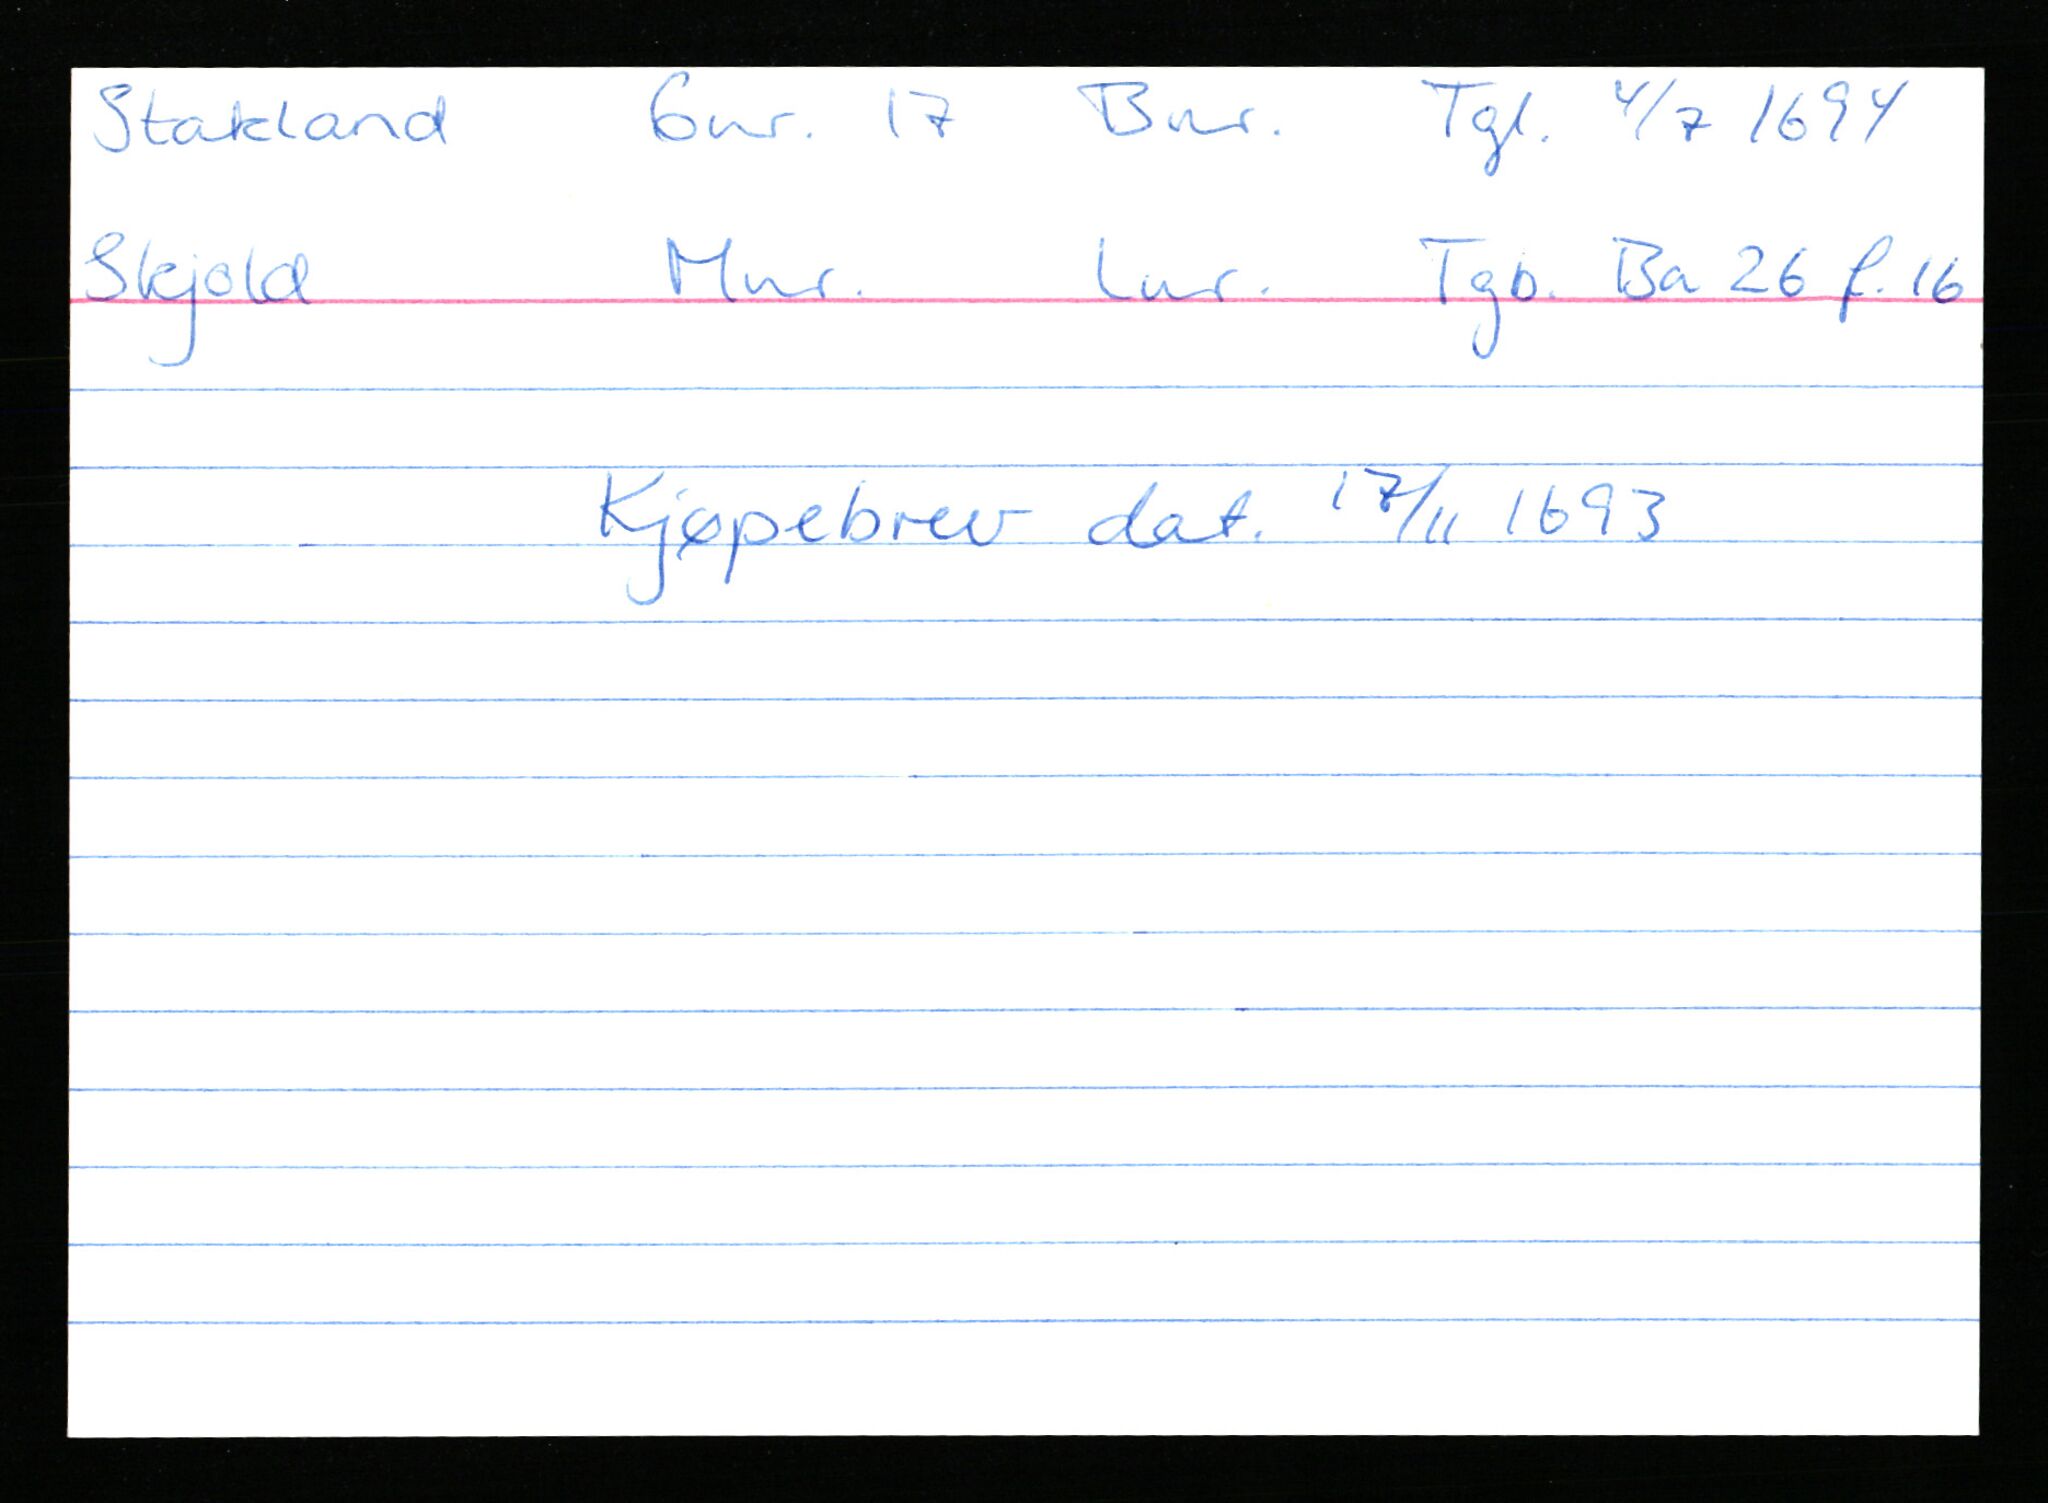 Stakland Gnr. 17 Bnr. Tgl. 4/7 1694
Skjold Mnr. Lnr. Tgb. Ba 26 f. 16
Kjøpebrev dat. 17/11 1693